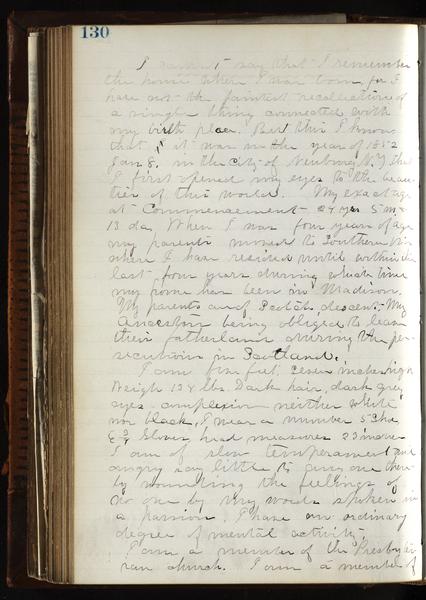 130
I cannot say that I remember
the house where I was born for I
have not the faintest recollection of
a single thing connected with
my birth place. But this I know
that it was in the year of 1852
Jan 8. in the City of Newburg N.Y. that
I first opened my eyes to the beau-
ties of this world. My exact age
at Commencement 24 yrs 5 mo
13 da. When I was four years of age
my parents moved to Southern Wis
where I have resided until within the
last four years during which time
my home has been in Madison.
My parents are of Scotch descent. My
Ancestors being obliged to leave
their fatherland during the per-
secutions in Scotland.
I am five feet seven inches high
Weigh 128 lbs. Dark hair, dark grey
eyes complexion neither white
nor black, I wear a number 5 shoe
6 3/4 Glove, head measures 23 inches
I am of slow temperament and
angry say little to any one there-
by wounding the feelings of
no one by my words spoken in
a passion. I have an ordinary
degree of mental activity.
I am a member of the Presbyte-
rian church. I am a member of